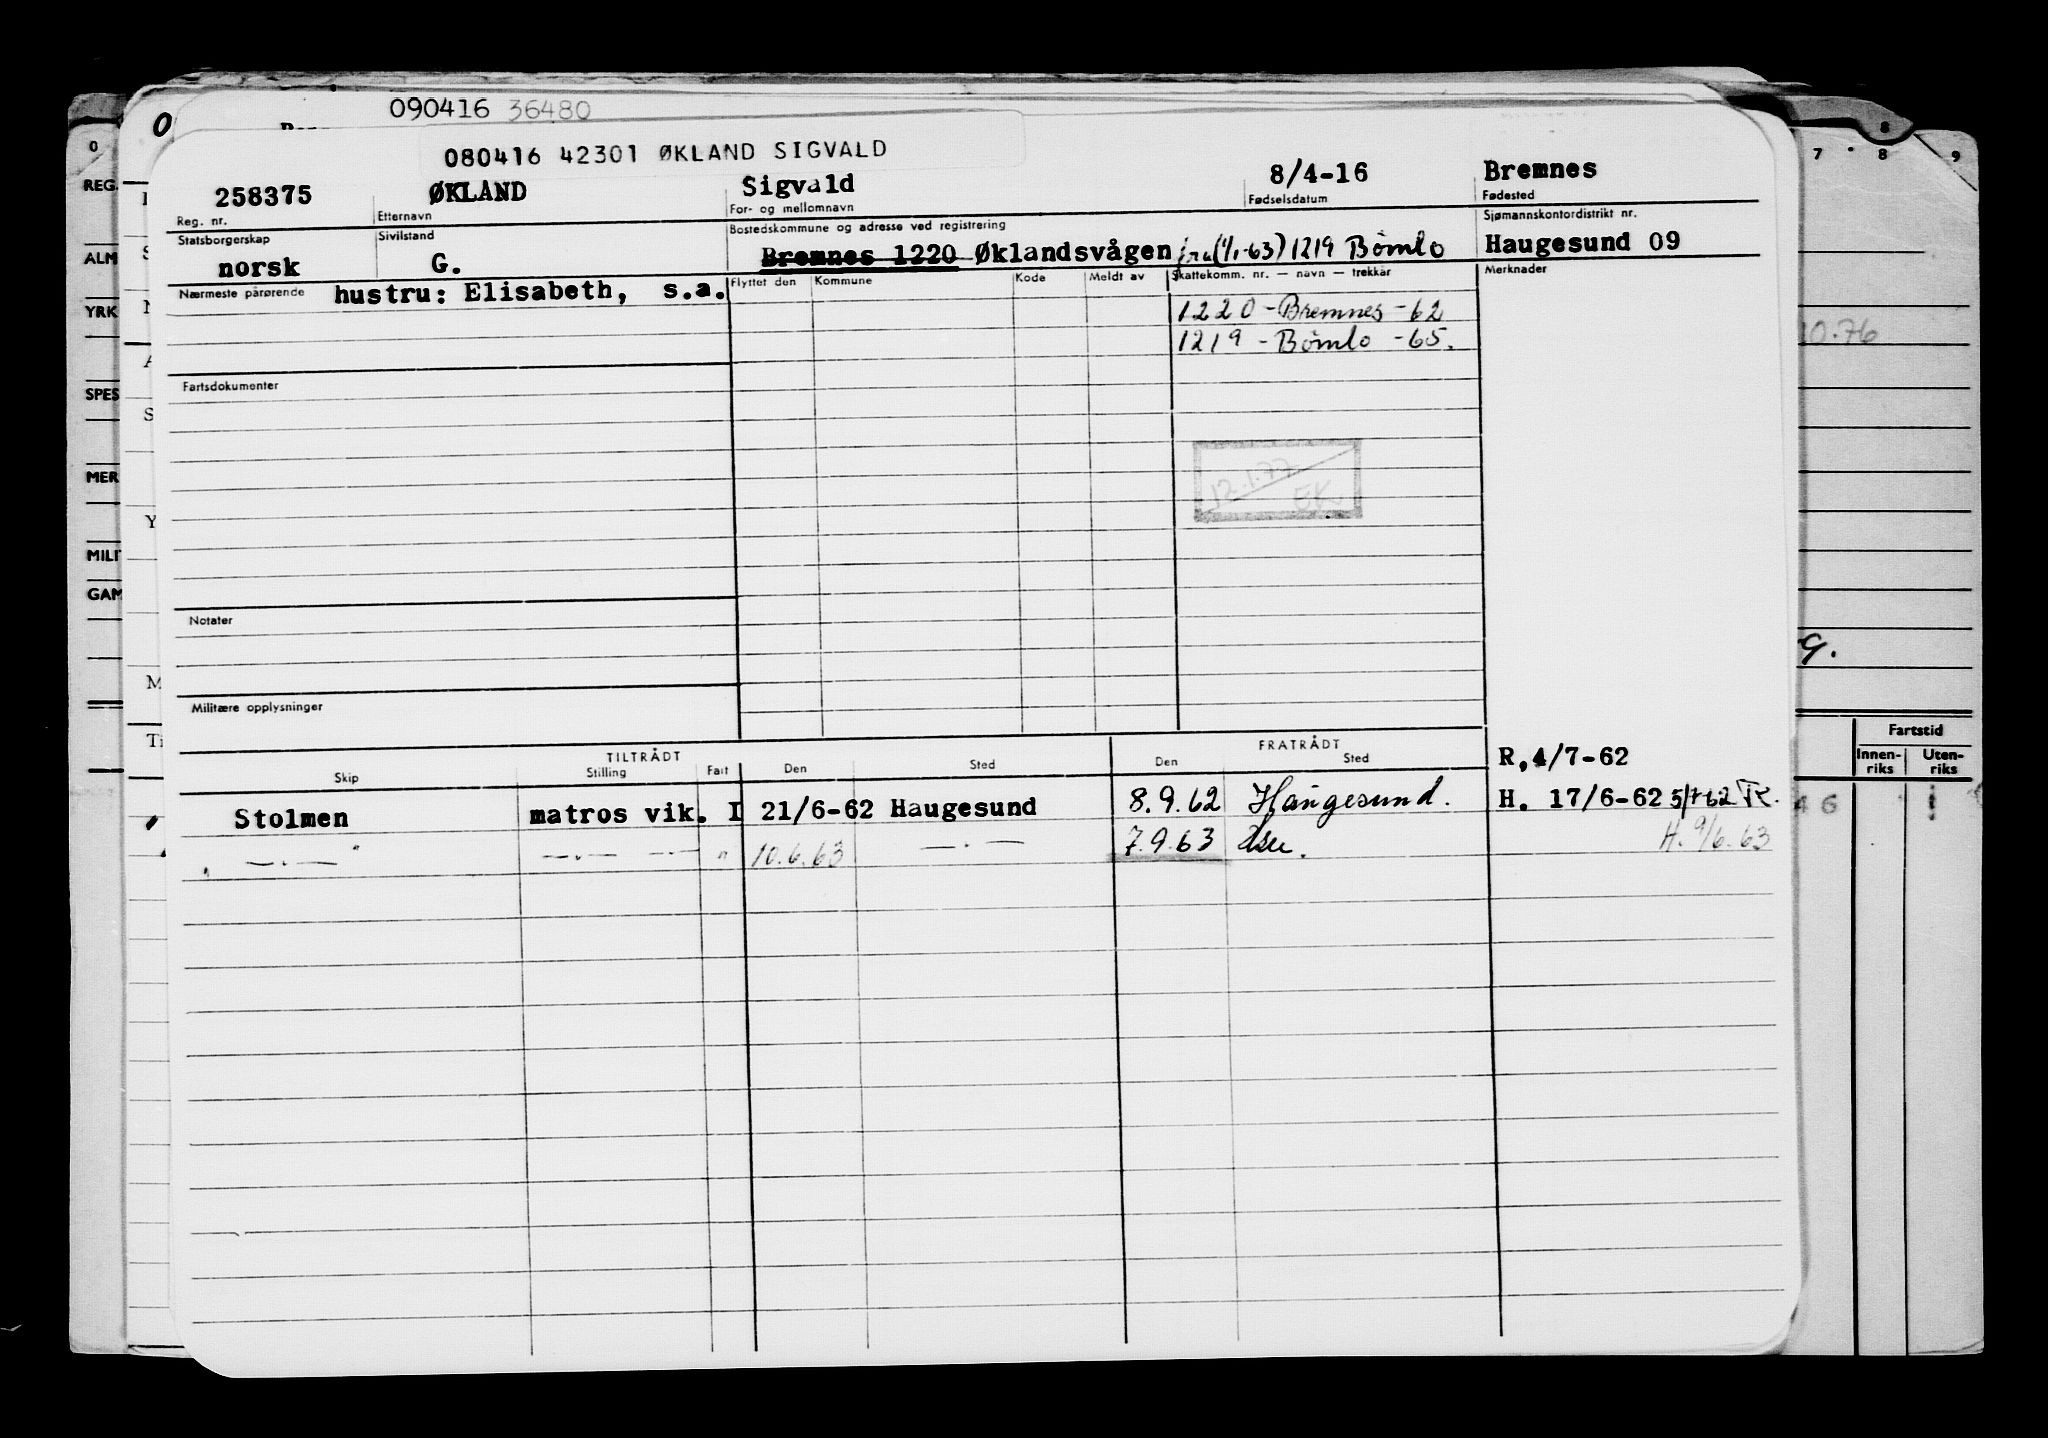 090416 36480
080416 42301 ØKLAND SIGVALD
258375 ØKLAND Sigvald 8/4-16 Bremnes
Reg. nr. Etternavn For- og mellomnavn Fødselsdatum Fødested
Statsborgerskap Sivilstand Bostedskommune og adresse ved registrering Sjømannskontordistrikt nr.
norsk G. Bremnes 1220 Øklandsvågen fra (1/1-63) 1219 Bömlo Haugesund 09
Nærmeste pårørende hustru: Elisabeth, s.a. Flyttet den Kommune Kode Meldt av Skattekomm. nr. — navn — trekkår Merknader
1220 - Bremnes - 62
1219 - Bömlo - 65.
Fartsdokumenter
12.1.77
EK
Notater
Militære opplysninger
TILTRÅDT FRATRÅDT
Skip Stilling Fart Den Sted Den Sted
R, 4/7-62
Stolmen matros vik. I 21/6-62 Haugesund 8.9.62 Haugesund. H. 17/6-62 5/7 62 TK.
" — . — " — . — — . — " 10.6.63 — . — 7.9.63 H. 9/6.63
0
REG.
ALM
YRK
SPES
MER
MILI
GAM
O
S
N
A
S
Y
M
Ti
7 8 9
8
10.76
9.
Fartstid
Innen-riks Uten-riks
46